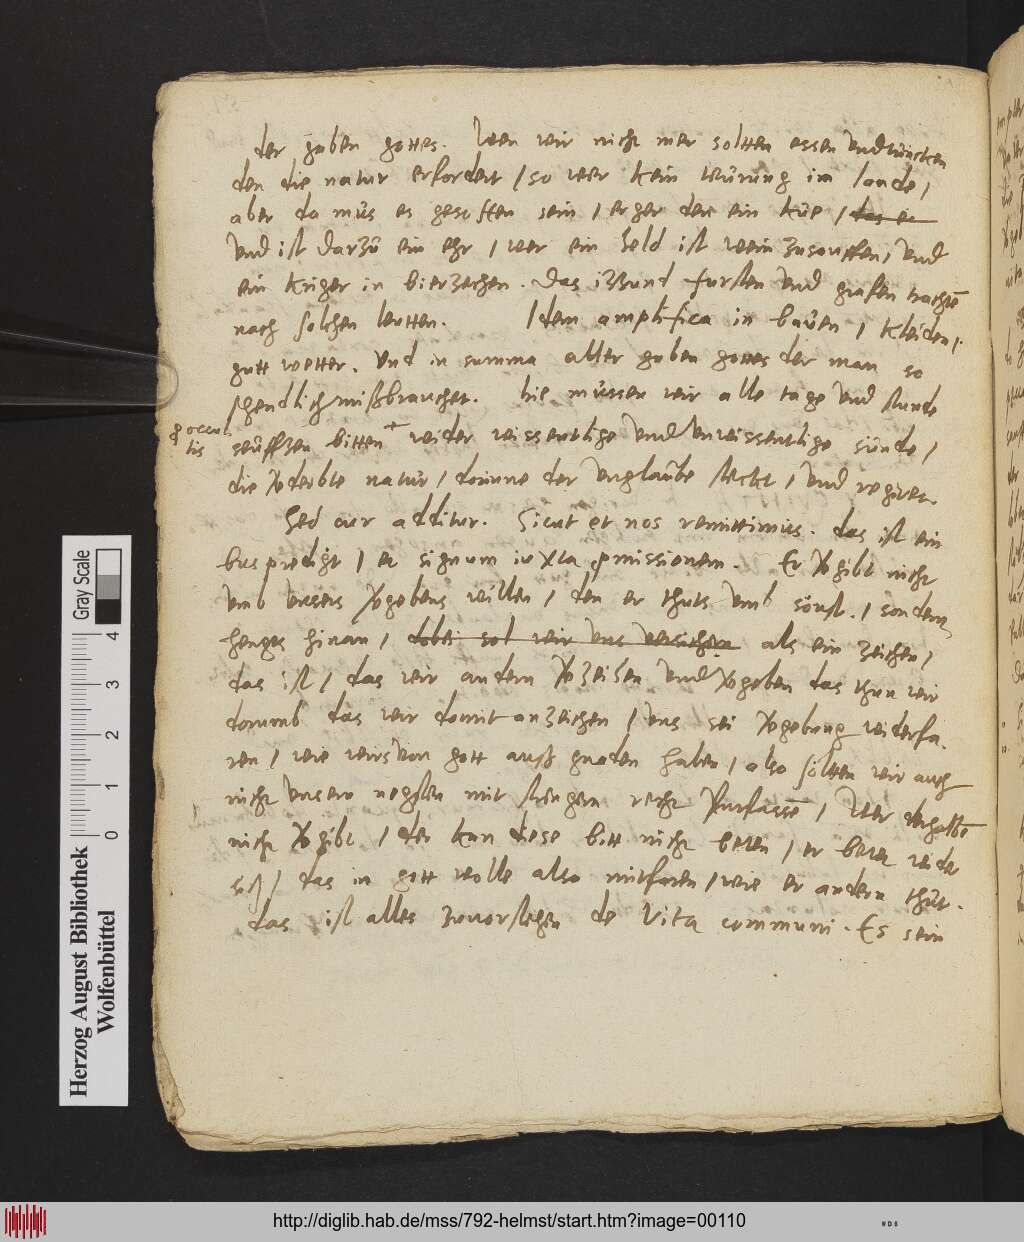 der gaben gottes. Wen wir nicht mer soltten essen und trincken
den die natur erfordert / so wer kein teurung im lande /
aber da mus es gesoffen sein / erger den ein kue / das ei
und ist darzu ein ehr / wer ein held ist wein zusauffen / und
ein kriger in bierzechen. Das itzund fursten und grafen trachtē
nach solchen leutten. Idem amplifica in bauen / kleiden /.
gutt wetter. Und in summa aller gaben gottes der man so
schendlich mißbrauchet. hie mussen wir alle tage und stunde
occul
tis
seufftzen bitten + wider wissentlige und unwissentlige sunde /
die vderbte natur / dorinne der unglaube steckt / und regiret.
Sed cur additur. Sicut et nos remittimus. das ist ein
bus predigt / et signum iuxta pmissionem. Er vgibt nicht
umb unsers vgebens willen / den er thuts umb sonst. / sondern
henges hinan / dobei sol wir uns versichern als ein zeichen /
das ist / das wir andern vzeihen und vgeben das thun wir
dorumb das wir domit anzeichen / uns sei vgebung widerfa.
ren / wie wirs von gott auß gnaden haben / also soltten wir auch
nicht unsern nehsten mit recht / Wer derhalbē
nicht vgibt / der kan diese bitt nicht beten / er betet wider
sich / das in gott wolle also mitfaren / wie er andern thut.
das ist alles zuvorstehen de vita communi. Es sein
Herzog August Bibliothek
Wolfenbüttel
0 1 2 3 4
Gray Scale
http://diglib.hab.de/mss/792-helmst/start.htm?image=00110